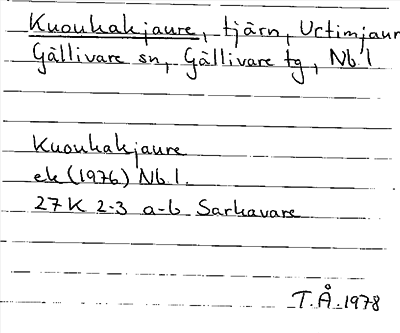 Kuoukakjaure, tjärn, Urtimjaur
Gällivare sn, Gällivare tg, Nb.l
Kuoukakjaure
ek (1976) Nb l.
27 K 2-3 a-b Sarkavare
T.Å. 1978